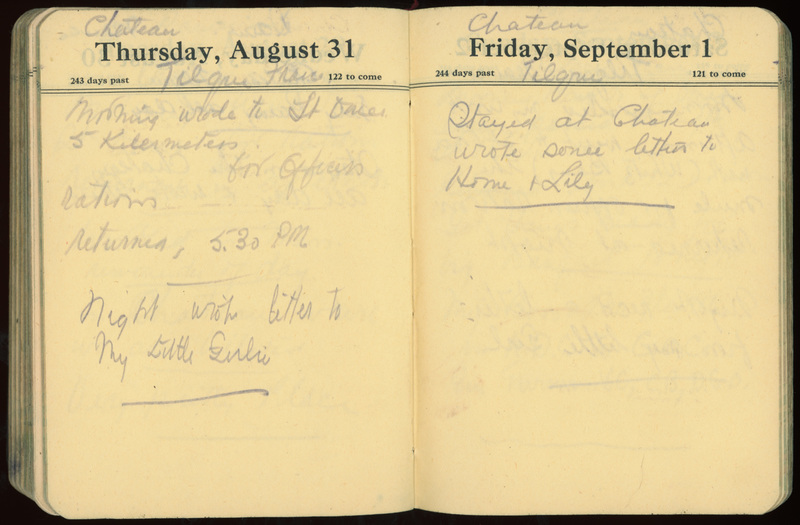 Chateau
Thursday, August 31
Tilque France
243 days past
122 to come
Morning wrote to St Omer
5 Kilermeters
for Officers
rations
returned, 5.30 PM
Night wrote letter to
My Little Girlie
Chateau
Friday, September 1
Tilque
244 days past
121 to come
Stayed at Chateau
wrote some letters to
Home + Lily